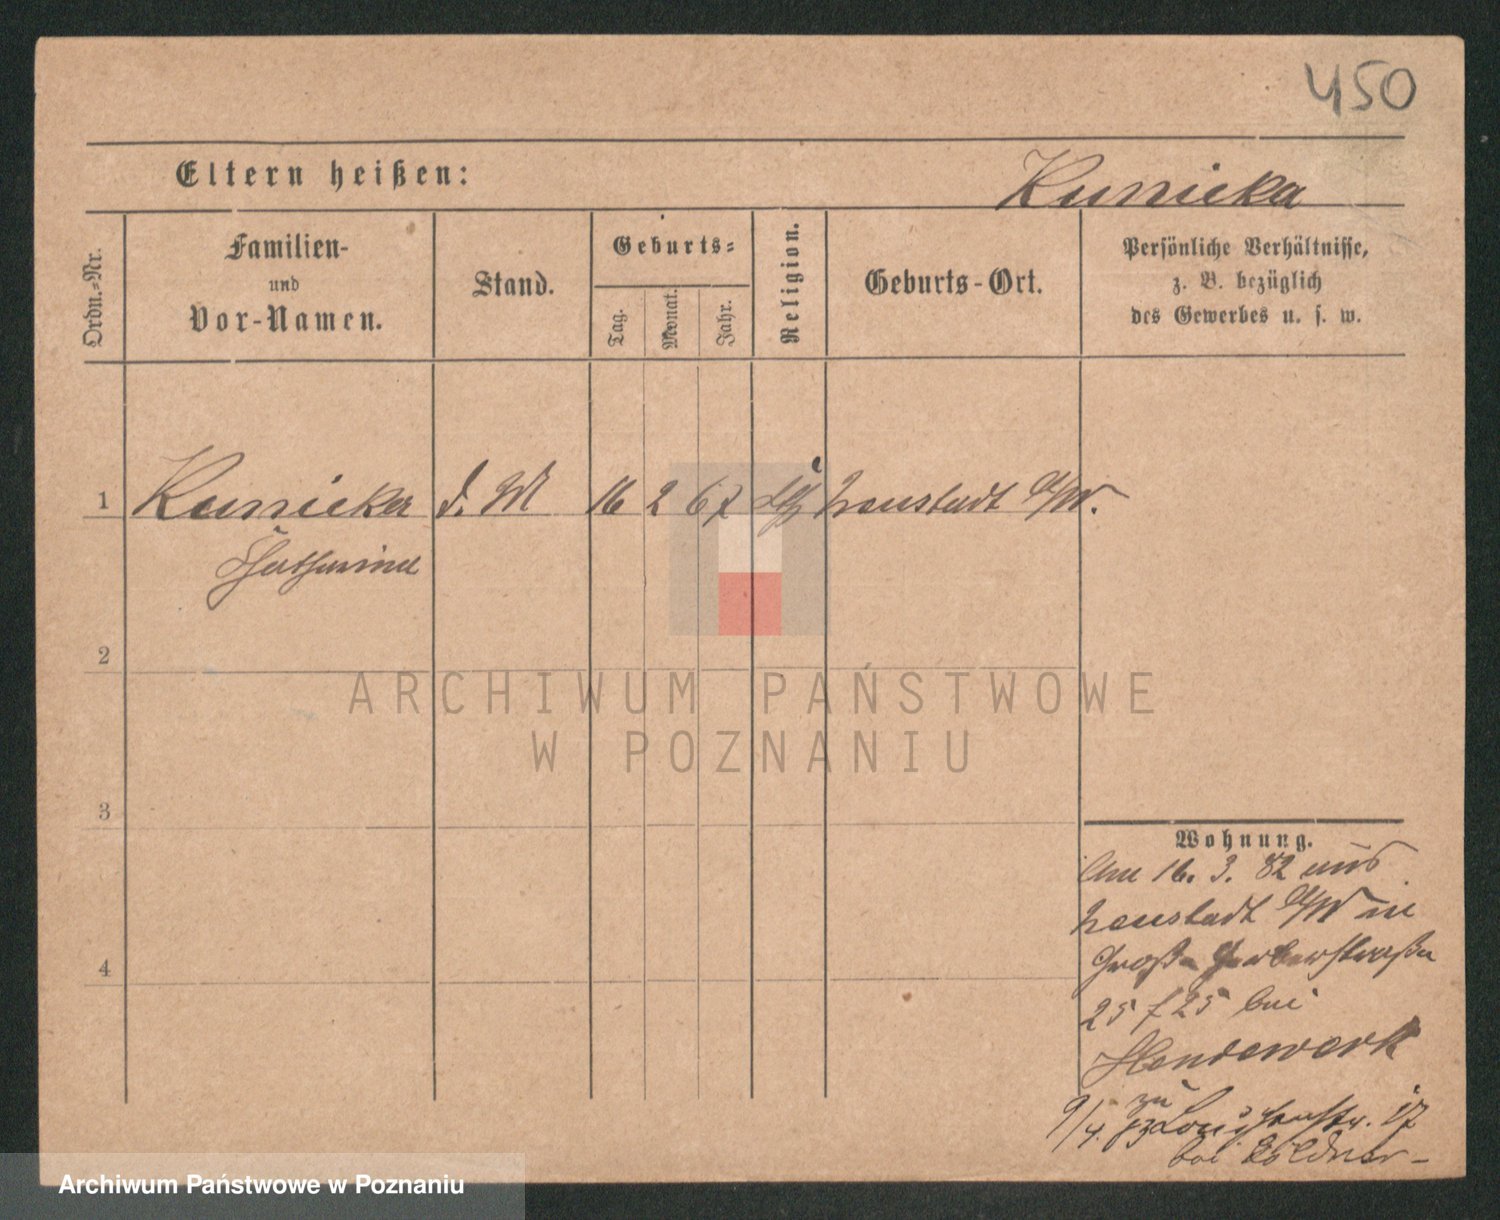 450
Eltern heißen:
Kunicka
Ordn.-Nr.
Familien-
und
Vor-Namen.
Stand.
Geburts-
Tag.
Monat.
Jahr.
Religion.
Geburts-Ort.
Persönliche Verhältnisse,
z. B. bezüglich
des Gewerbes u. s. w.
1 Kunicka d. M 16 2 67 Neustadt a/W.
Catharina
2
3
4
ARCHIWUM PAŃSTWOWE
W POZNANIU
Wohnung.
Am 16. 3. 82 aus
Neustadt a/W in
Große Gerberstraße
25 f 25 bei
Handewerk
9/4. 83 zu Louisenstr. 17
bei Töldner
Archiwum Państwowe w Poznaniu